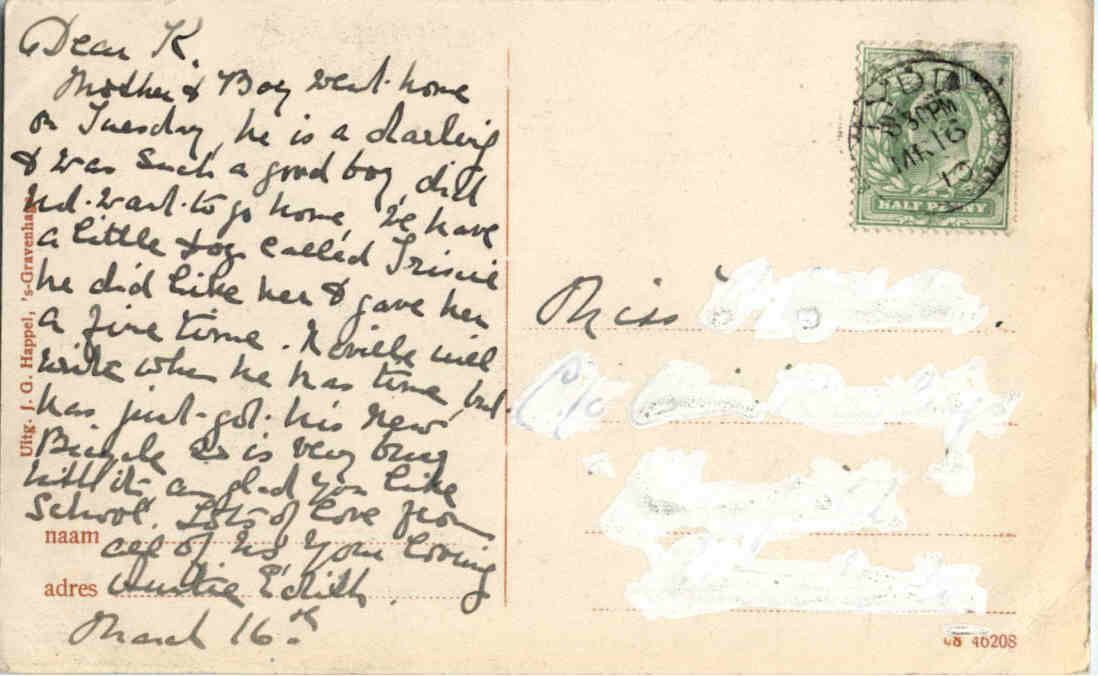 Dear K.
Mother & Boy went home
on Tuesday, he is a darling
& was such a good boy, did
not want to go home, We have
a little dog called Trixie
he did like her & gave her
a fine time. Neville will
write when he has time, but
has just got his new
Bicycle & is very busy
with it am glad you like
School. Lots of love from
all of us Your loving
Auntie Edith.
March 16th
naam
adres
Uitg. J. G. Happel, 's-Gravenhage
HYDE
8 30 PM
MR 16
10
HALF PENNY
Miss
C/o
46208